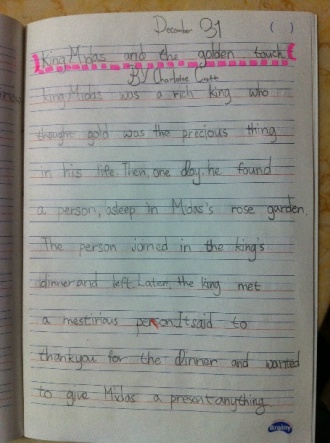 December 31 ( )
King Midas and the golden touch
BY Charlotte Craft
King Midas was a rich king who
thought gold was the precious thing
in his life. Then, one day, he found
a person, asleep in Midas's rose garden.
The person joined in the king's
dinner and left. Later, the king met
a mestirious person. It said to
thankyou for the dinner and wanted
to give Midas a present anything
Brainy